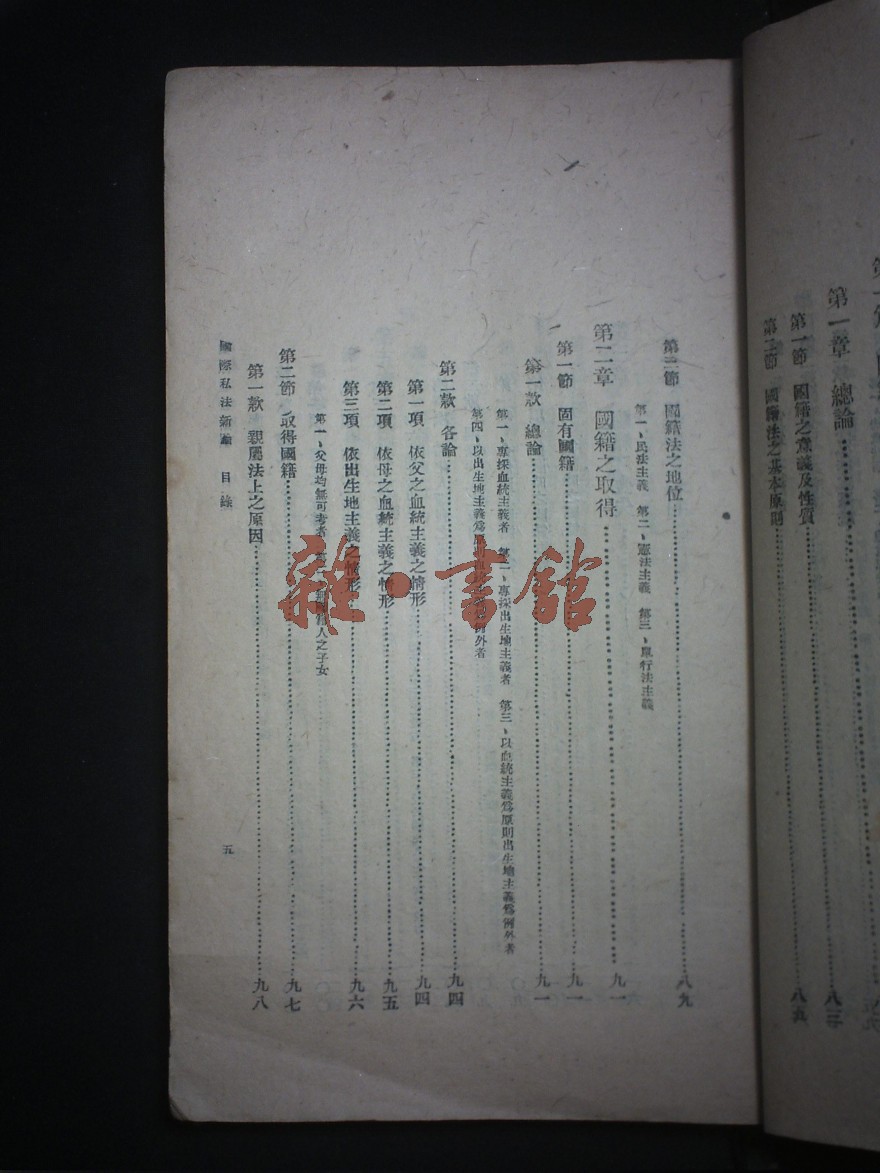 第一章 總論
第一節 國籍之意義及性質 八五
第二節 國籍法之基本原則
第三節 國籍法之地位 八九
第一、民法主義 第二、憲法主義 第三、單行法主義
第二章 國籍之取得 九一
第一節 固有國籍 九一
第一款 總論 九一
第一、專採血統主義者 第二、專採出生地主義者 第三、以血統主義爲原則出生地主義爲例外者
第四、以出生地主義爲原則血 例外者
第二款 各論 九四
第一項 依父之血統主義之情形 九四
第二項 依母之血統主義之情形 九五
第三項 依出生地主義之情形 九六
第一、父母均無可考者 人之子女
第二節 取得國籍 九七
第一款 親屬法上之原因 九八
國際私法新論 目錄 五
雜·書館